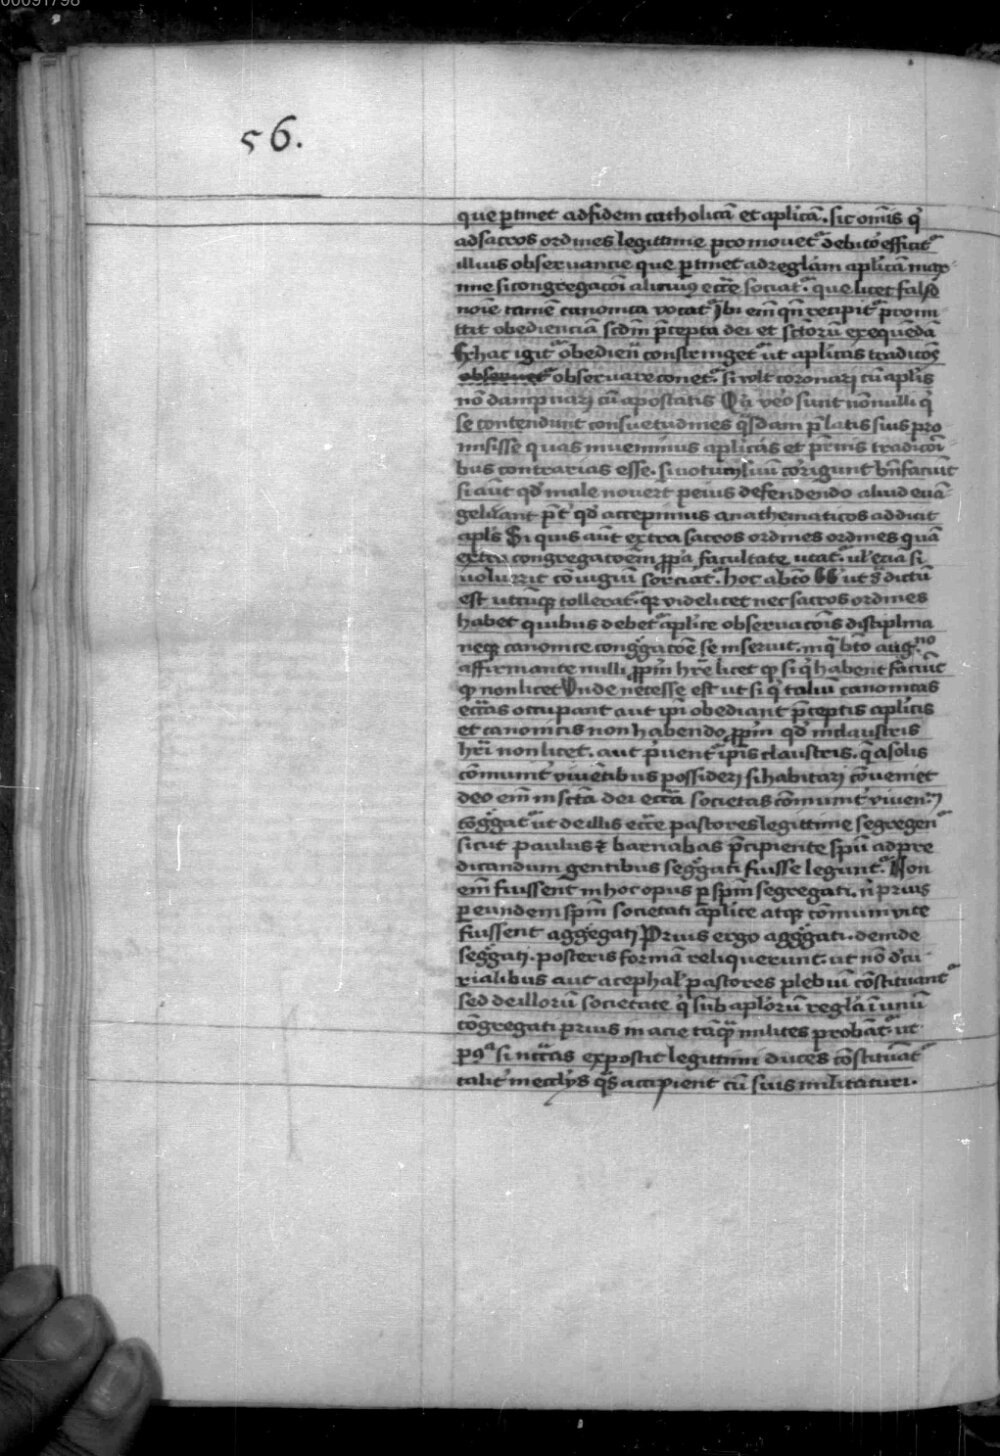 00091798
56.
que ꝑtinet ad fidem catholicā et aplicā. sic om̄is q̇
ad sacros ordines legittime promouet᷑ debitor efficit᷑
illius obseruancie que ꝑtinet ad reglam aplicā max
ime si congregacoi alicuiꝯ eccͤ sociat᷑. que licet falso
noīe tamē canonica vocat᷑ Ibi em̄ qn̄ recipit᷑ promi
ttit obedienciā scdm p̄cepta dei et sctorū exequēdā
Ex hac igit᷑ obedien̄ constringet᷑ ut aplicas tradicōes
obseruet obseruare conet᷑. si vult coronari cū aplis
nō dampnari cū apostatis Qꝛ vero sunt nōnulli q̇
se contendunt consuetudines qͣsdam p̄latis suis pro
misisse quas inuenimus aplicas et p̄mis tradicōi
bus contrarias esse. si votum suū corigunt bn̄ faciūt
si aūt qd̓ male nouert peius defendendo aliud euā
gelizant p̄t qd̓ accepimus anathematicos addicat
apls Si quis aūt extra sacros ordines ordines quā
extra congregatoem ꝓpa facultate utat᷑. ul̓ ecia si
uoluerit cōiugiū sorciat᷑. hoc ab ut dictū
est utcūqꝫ tollerat᷑. qꝛ videlicet nec sacros ordines
habet quibus debet᷑ aplice obseruacōis disciplina
neqꝫ canonice congͣgatoē se inseruit. in qͣ bto aug.no
affirmante nulli ꝓpm hr̄e licet qꝫ si q̇ habent faciūt
qꝫ non licet Vnde necesse est ut si q̇ taliū canonicas
eccͣas occupant aut ipi obediant p̄ceptis aplicis
et canonicis non habendo ꝓpm qd̓ in claustris
hri non licet. aut p̄uent᷑ ipis claustris. qͣ a solis
cōmunit̓ viuētibus possideri si habitari cōuemet
deo em̄ in sctā dei eccͣa societas cōmunit̓ viuen
cōgͣgat᷑ ut de illis eccͤ pastores legittime segregen᷑
sicut paulus ⁊ barnabas p̄cipiente spū ad pre
dicandum gentibus segͣgati fuisse legunt᷑. Non
em̄ fuissent in hoc opus ꝑ spm segregati. n̄ prius
ꝑ eundem spm societati aplice atqꝫ cōmuni vite
fuissent aggͣegati Prius ergo aggͣgati. deinde
segͣgati. posteris formā reliquerunt. ut nō d̓ cu
rialibus aut acephal̓ pastores plebiū cōstituant᷑
sed de illorū societate q̇ sub aplorū regla ī unū
cōgregati prius in acie tāqͣ milites probāt᷑. ut
pꝯͣ si nccͣas exposcit legittimi duces cōstituāt᷑
talit̓ in ecclijs qͦs accipient cū suis militaturi.